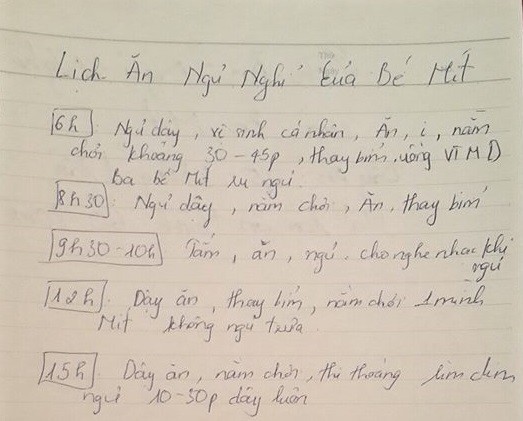 Lịch Ăn Ngủ Nghỉ Của Bé Mít
6h Ngủ dậy, vệ sinh cá nhân, Ăn, ị, nằm
chơi khoảng 30 - 45p, thay bỉm, uống VTM D
Ba bế Mít ru ngủ.
8h30 Ngủ dậy, nằm chơi, Ăn, thay bỉm
9h30-10h Tắm, ăn, ngủ. cho nghe nhạc khi
ngủ
12h Dậy ăn, thay bỉm, nằm chơi 1 mình
Mít không ngủ trưa.
15h Dậy ăn, nằm chơi, thi thoảng lim dim
ngủ 10-30p dậy luôn